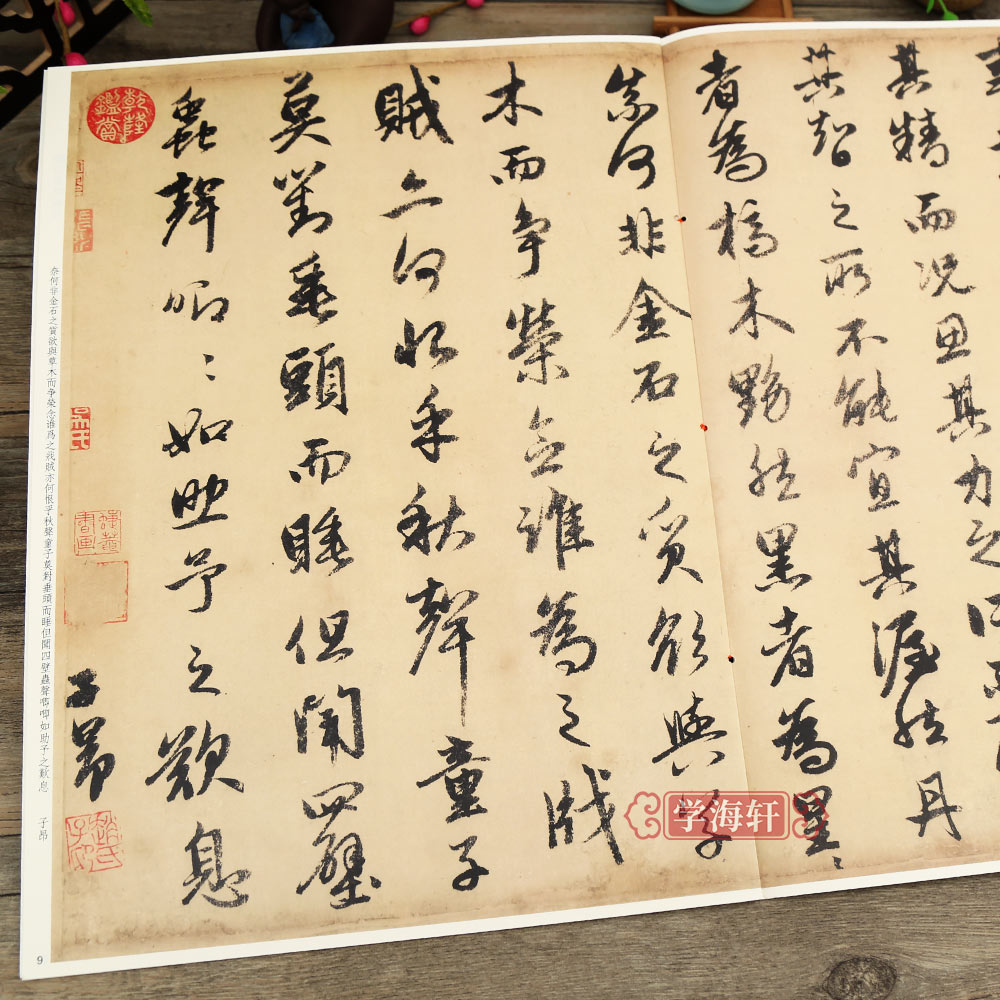 其精而况思其力之所不
其智之所不能宜其渥然丹
者為槁木黟然黑者為星〻
奈何非金石之質欲與草
木而争榮念誰為之戕
賊亦何恨乎秋聲童子
莫對垂頭而睡但聞四壁
蟲聲唧〻如助予之歎息
子昂
乾隆鑑賞
趙氏子昂
奈何非金石之質欲與草木而爭榮念誰爲之戕賊亦何恨乎秋聲童子莫對垂頭而睡但聞四壁蟲聲唧唧如助予之歎息 子昂
9
学海轩